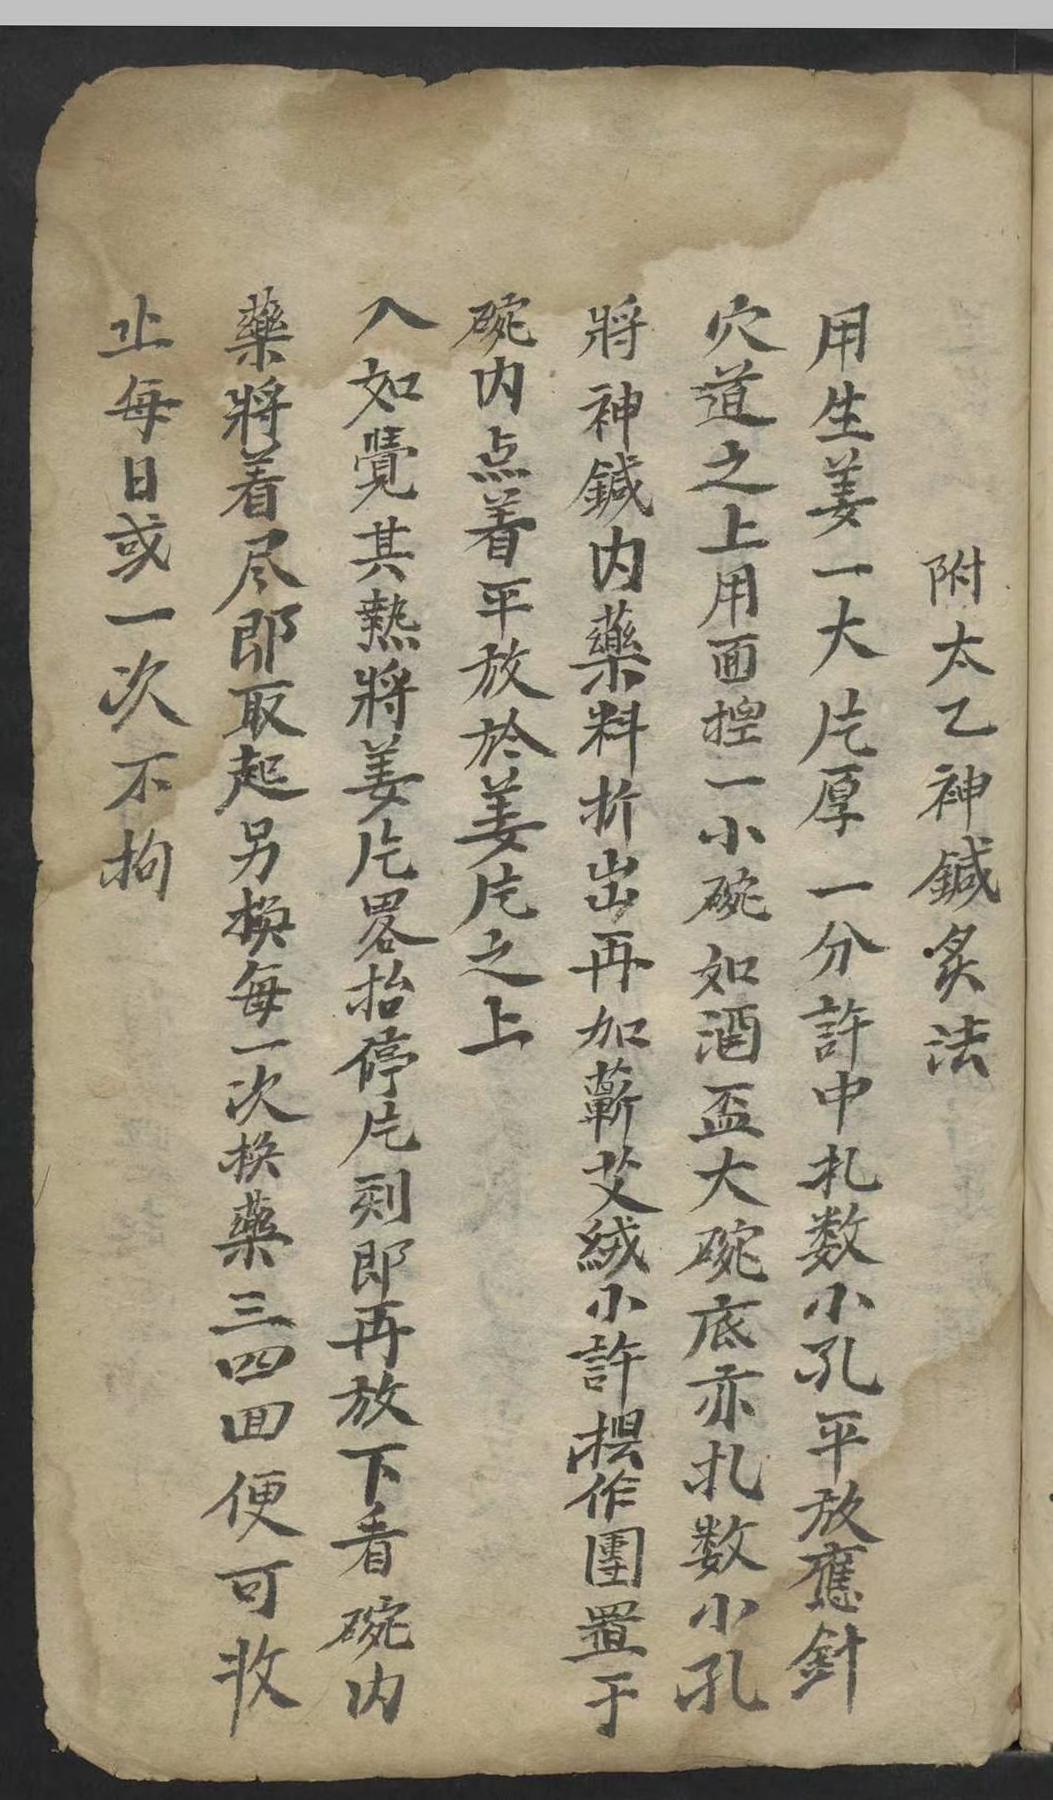 附太乙神鍼炙法
用生姜一大片厚一分許中扎数小孔平放應針
穴道之上用面揑一小碗如酒盃大碗底亦扎数小孔
將神鍼内藥料折出再加蘄艾絨小許揑作團置于
碗内点着平放於姜片之上
入如覺其熱將姜片畧抬停片刻即再放下看碗内
藥將着尽即取起另换每一次换藥三四回便可收
止每日或一次不拘